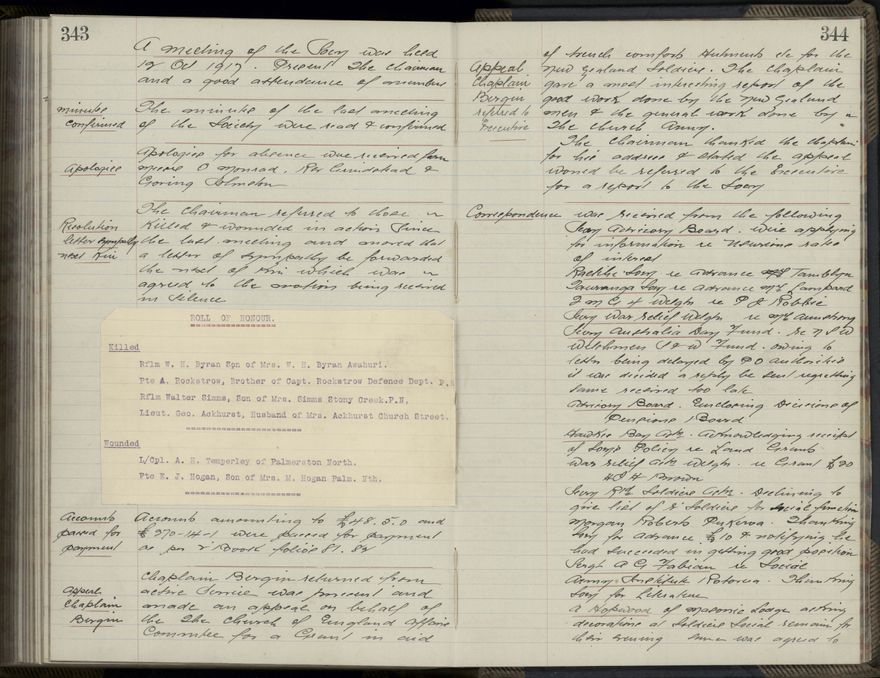 343
A meeting of the Socy was held
12 Oct 1917. Present The Chairman
and a good attendance of members
minutes
confirmed
The minutes of the last meeting
of the Society were read & confirmed
Apologies
Apologies for absence were received from
Messrs O Monrad. Rev Grinstead &
Goring Johnston
Resolution
letter sympathy
next kin
The Chairman refered to those
Killed & wounded in action since
the last meeting and moved that
a letter of sympathy be forwarded
the next of kin which was
agreed to the motion being received
in silence
ROLL OF HONOUR.
Killed
Rflm W. H. Byran Spn of Mrs. W. H. Byran Awahuri.
Pte A. Rockstrow, Brother of Capt. Rockstrow Defence Dept. P.N
Rflm Walter Simms, Son of Mrs. Simms Stony Creek.P.N,
Lieut. Geo. Ackhurst, Husband of Mrs. Ackhurst Church Street.
Wounded
L/Cpl. A. H. Temperley of Palmerston North.
Pte E. J. Hogan, Son of Mrs. M. Hogan Palm. Nth.
Accounts
passed for
payment
Accounts amounting to £48.5.0 and
£270-14-1 were passed for payment
as per Book folios 81. 82
Appeal
Chaplain
Bergin
Chaplain Bergin returned from
active Service was present and
made an appeal on behalf of
the The Church of England Affairs
Committee for a Grant in aid
344
Appeal
Chaplain
Bergin
refered to
Executive
of trench comforts Hutments etc for the
New Zealand Soldiers. The Chaplain
gave a most interesting report of the
good work done by the New Zealand
men & the general work done by
The Church Army.
The Chairman thanked the Chaplain
for his address & stated the appeal
would be refered to the Executive
for a report to the Socy
Correspondence was received from the following
Socy Advisory Board. were applying
for information re Nursing rates
of interest
Socy re Advance Tamblyn
Tauranga Socy re advance Lampard
& Welgtn re
Socy War relief Welgtn re Armstrong
Socy Australia Day Fund. re
Watchmen Fund. owing to
letter being delayed by P O authorities
it was decided a reply be sent regretting
same received too late
Advisory Board. Enclosing Decisions of
Pensions Board
Hawkes Bay Assn. Acknowledging receipt
of Socys Policy re Land Grants
War relief Assn Welgtn. re Grant £20
Brown
Socy Rtd Soldiers Assn. Declining to
give list of r Soldiers for social function
Morgan Roberts Thanking
Socy for advance £10 & notifying he
had succeeded in getting good position
Sergt A G Fabian re Social
Army Institute Rotorua. Thanking
Socy for Literature
A Hopwood of Masonic Lodge asking
decorations at Soldiers Social remain for
their evening same was agreed to